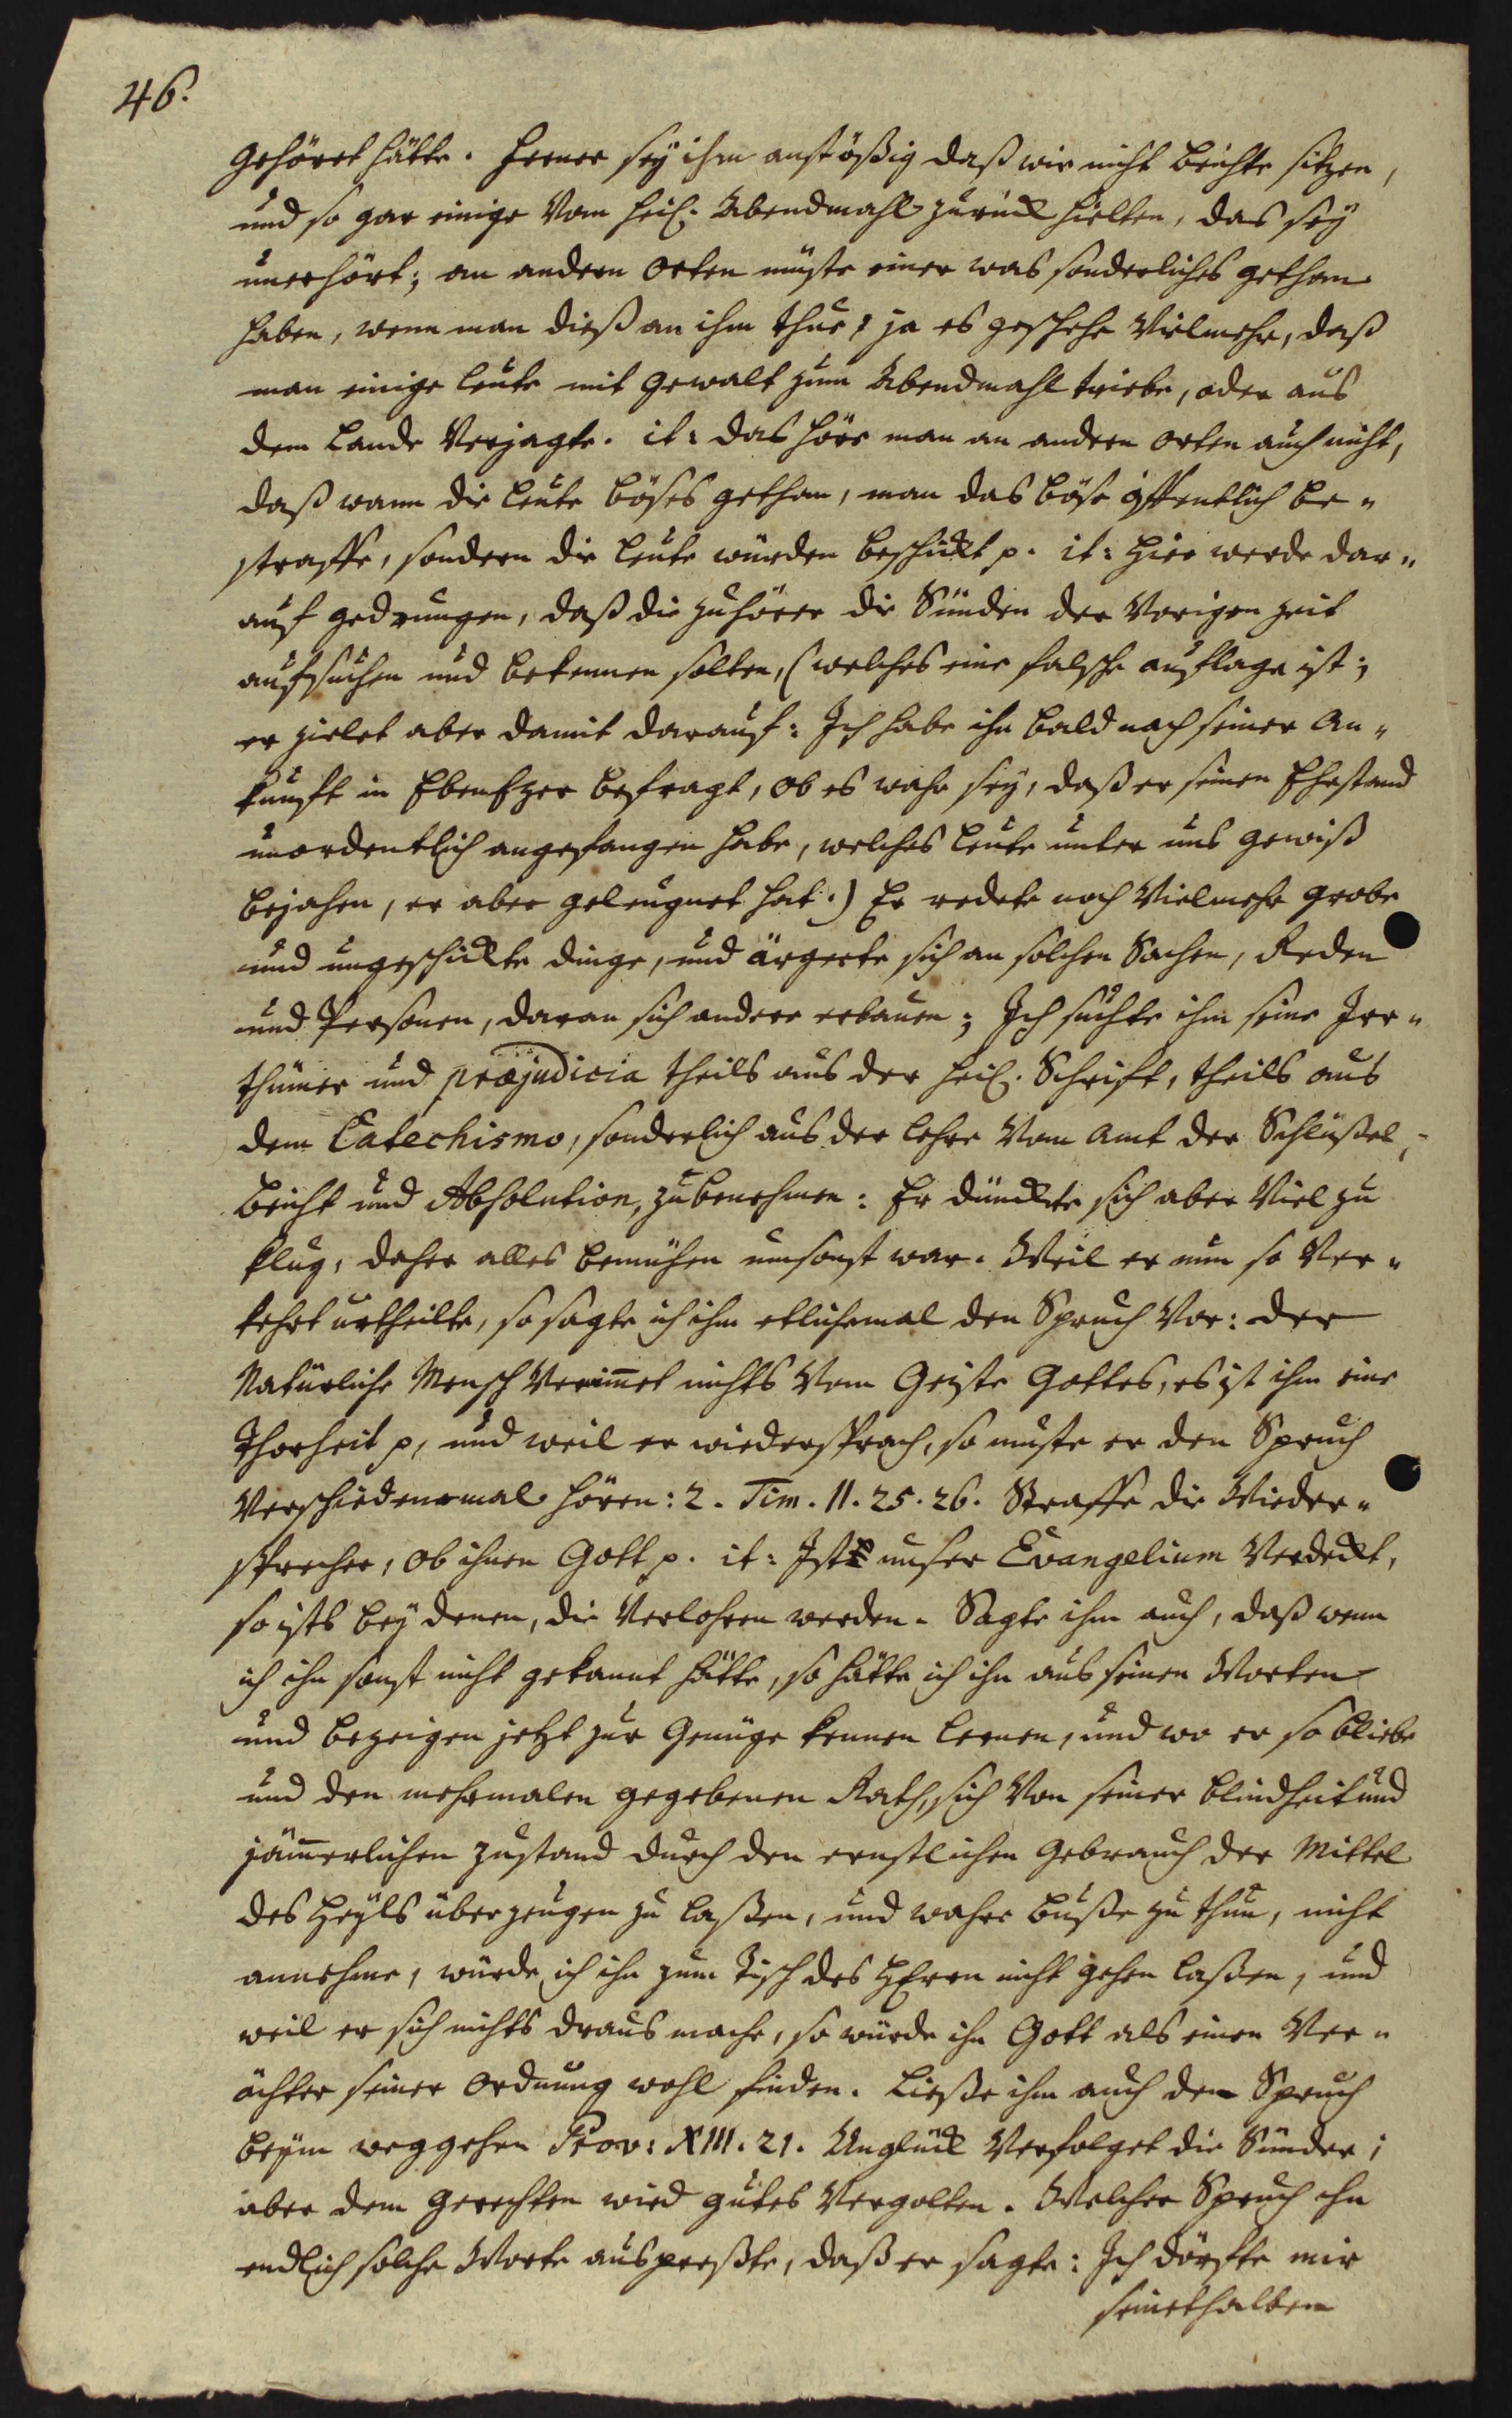 46.
gehöret hätte. Ferner sey ihm anstößig daß wir nicht beichte sitzen,
und so gar einige vom heil. Abendmahl zurück hielten, das sey
unerhört; an andern orten müste einer was sonderliches gethan
haben, wenn man dieß an ihm thue; ja es geschehe vielmehr, daß
man einige leute mit gewalt zum Abendmahl triebe, oder aus
dem Lande verjagte. it: das höre man an andern orten auch nicht,
daß wann die leute böses gethan, man das böse öffentlich be-
straffe, sondern die leute würden beschickt p. it: hier werde dar-
auf gedrungen, daß die zuhörer die Sünden der vorigen zeit
aufsuchen und bekennen solten, (welches eine falsche auflage ist;
er zielet aber damit darauf: Ich habe ihn bald nach seiner An-
kunfft in Ebenezer befragt, ob es wahr sey, daß er seinen Ehestand
unordentlich angefangen habe, welches leute unter uns gewiß
bejahen, er aber geleugnet hat.) Er redete noch vielmehr grobe
und ungeschickte dinge, und ärgerte sich an solchen Sachen, Reden
und Personen, daran sich andere erbauen; Ich suchte ihm seine Irr-
thümer und præjudicia theils aus der heil. Schrift, theils aus
dem Catechismo, sonderlich aus der lehre vom Amt der Schlüßel,
Beicht und Absolution, zu benehmen: Er dünckte sich aber viel zu
klug, daher alles bemühen umsonst war. Weil er nun so ver-
kehrt urtheilte, so sagte ich ihm etlichemal den Spruch vor: der
Natürliche Mensch vernim̅et nichts vom Geiste Gottes, es ist ihm eine
Thorheit p, und weil er wiedersprach, so muste er den Spruch
verschiedenemal hören: 2. Tim. II. 25. 26. Straffe die Wieder-
sprecher, ob ihnen Gott p. it: Ist unser Evangelium verdeckt,
so ists bey denen, die verlohren werden. Sagte ihm auch, daß wenn
ich ihn sonst nicht gekannt hätte, so hätte ich ihn aus seinen Worten
und bezeigen jetzt zur Genüge kennen lernen, und wo er so bliebe
und den mehrmalen gegebenen Rath, sich von seiner blindheit und
jäm̅erlichen zustand durch den ernstlichen Gebrauch der Mittel
des Heyls überzeugen zu laßen, und wahre buße zu thun, nicht
annehme, würde ich ihn zum Tisch des HErrn nicht gehen laßen, und
weil er sich nichts draus mache, so würde ihn Gott als einen Ver-
ächter seiner Ordnung wohl finden. Ließe ihm auch den Spruch
beym weggehen Prov: XIII. 21. Unglück verfolget die Sünder;
aber dem gerechten wird gutes vergolten. Welcher Spruch ihn
endlich solche Worte auspreßte, daß er sagte: Ich dörffte mir
seinethalben